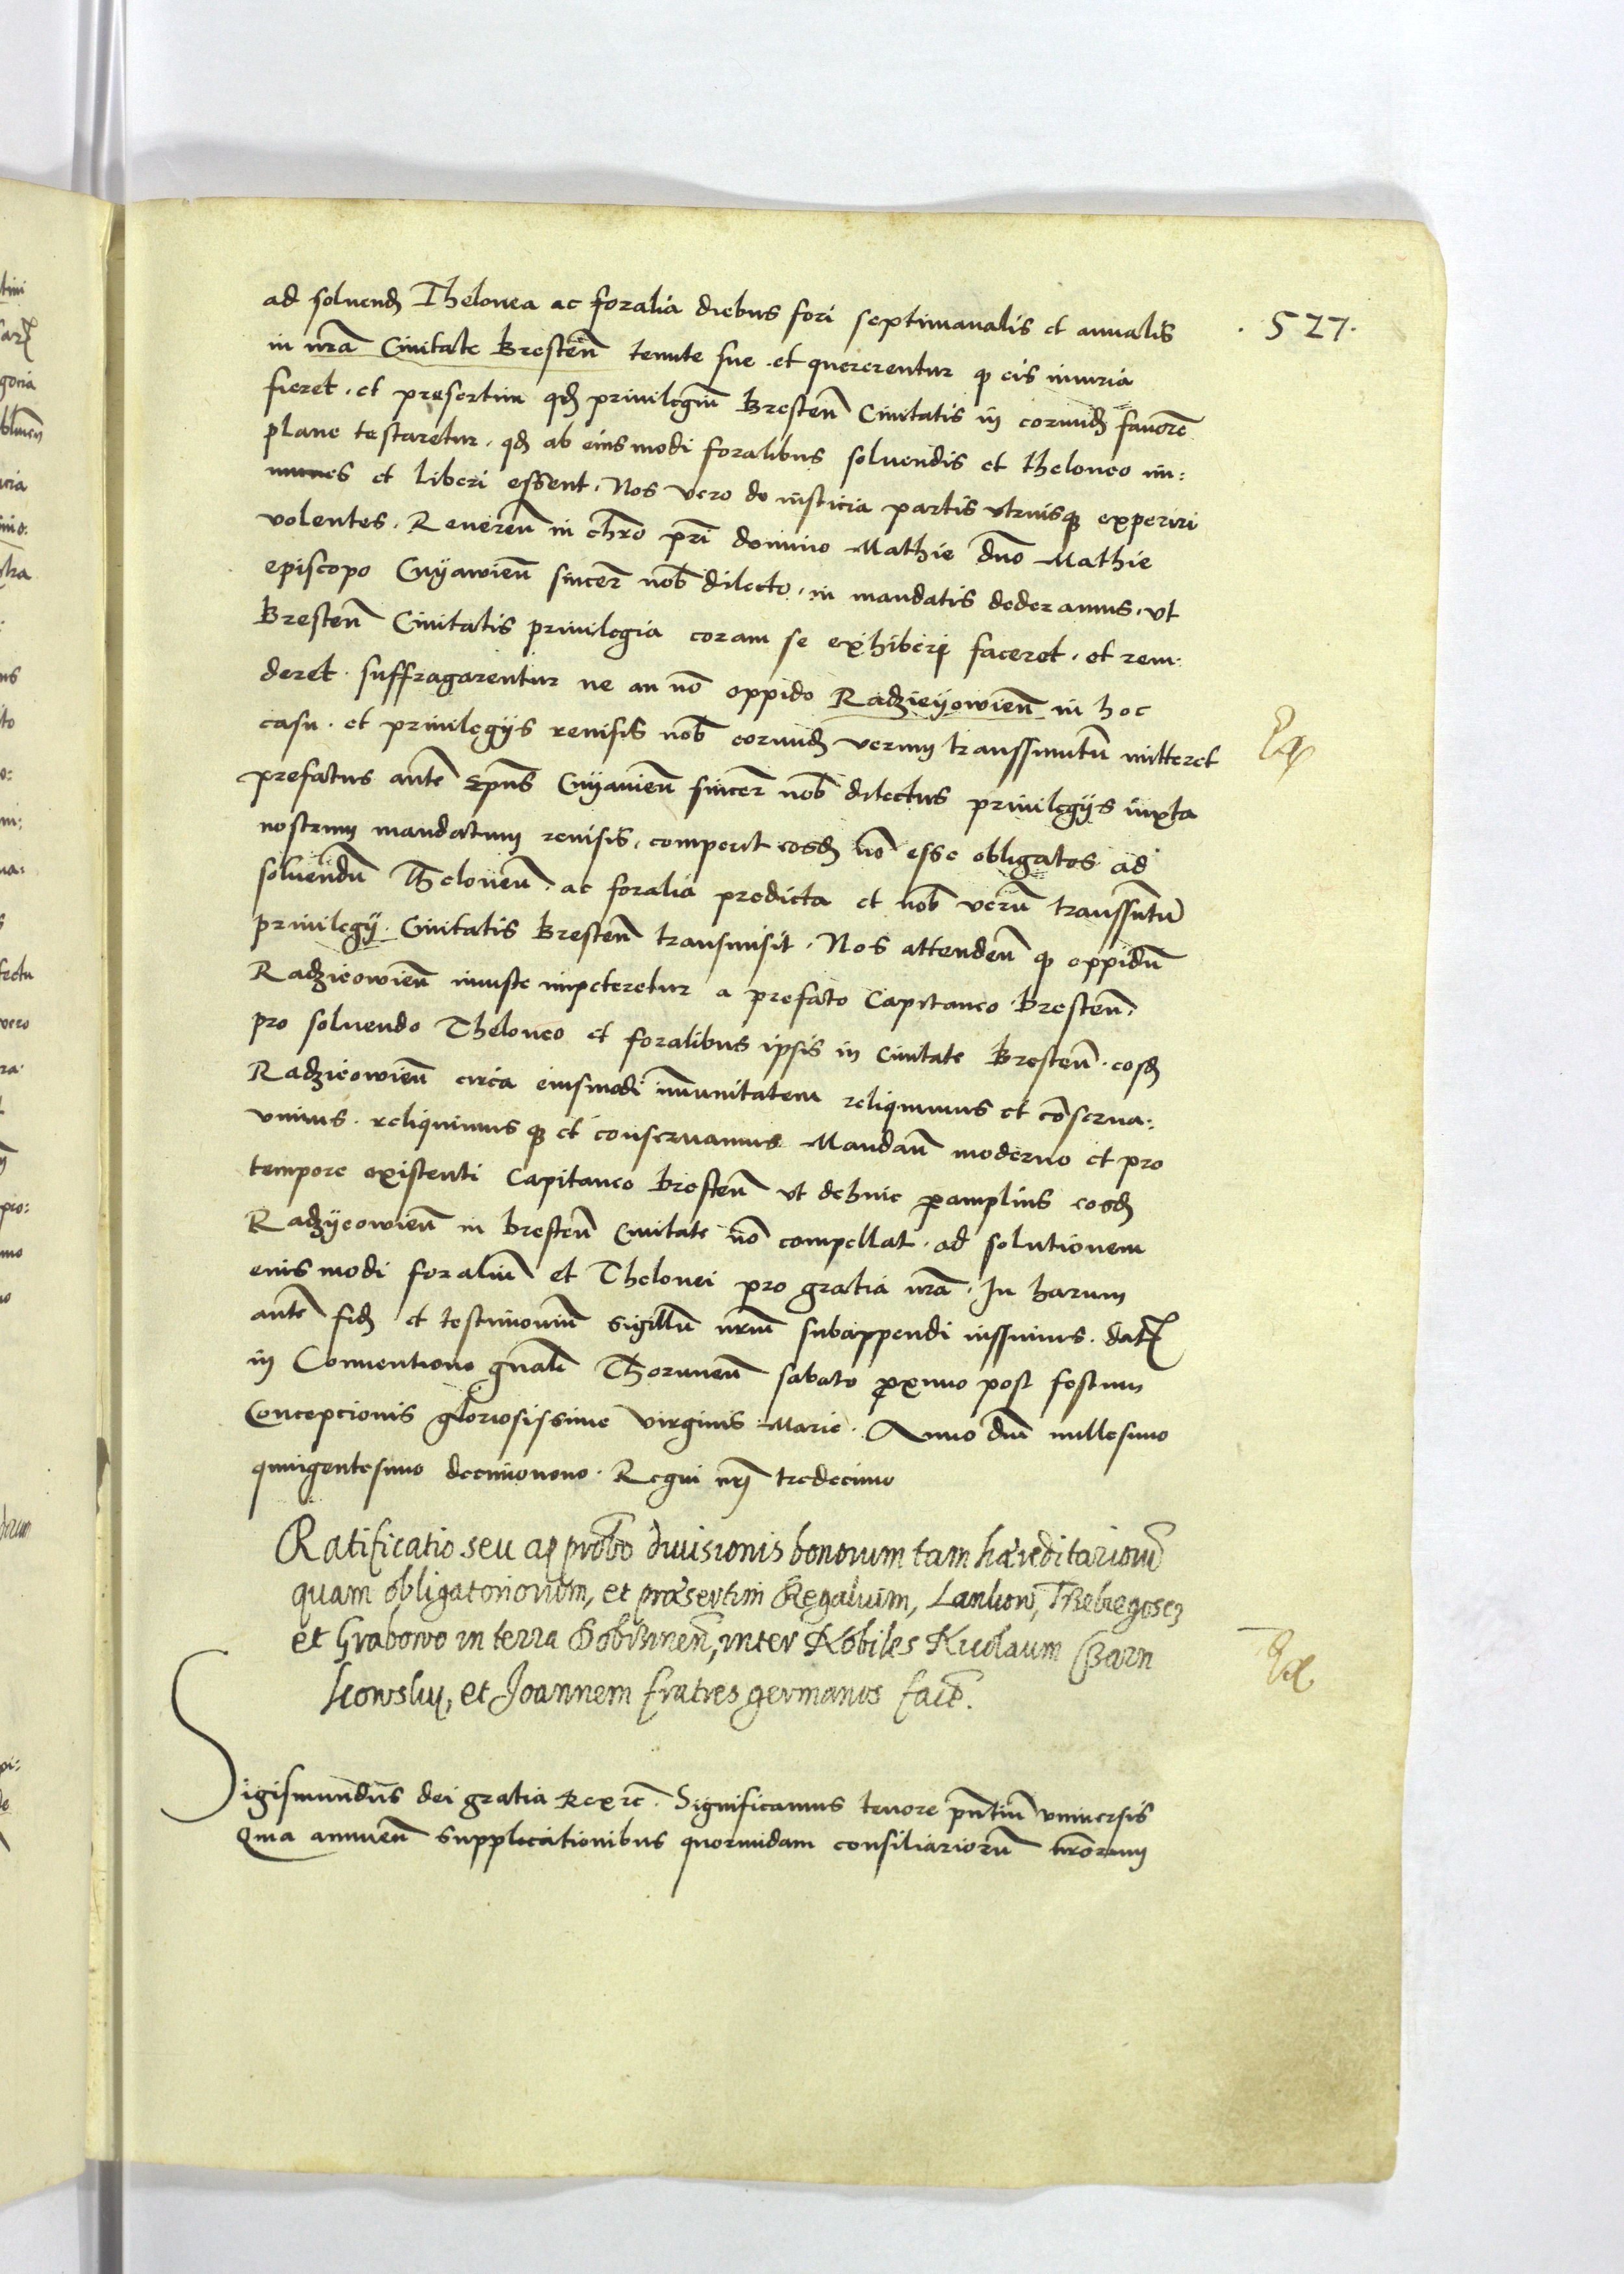 · 527 ·
ad soluend Thelonea ac foralia diebus fori septimanalis et annalis
in nrã Ciuitate Bresteñ tenute sue . et quererentur q eis iniuria
fieret . et presertim qd priuilegiũ Bresteñ Ciuitatis in eorund fauorẽ
plane testaretur . qd ab eiusmodi foralibus soluendis et theloneo im:
munes et liberi essent . Nos vero de iusticia partis vtriusq experiri
volentes . Reuereñ in chrõ prĩ domino Mathie dño Mathie
episcopo Cuyawieñ sincer nob dilecto . in mandatis dederamus . vt
Bresteñ Ciuitatis priuilegia coram se exhiberi faceret . et rem
deret . suffragarentur ne an nõ oppido Radzieyowieñ in hoc
casu . et priuilegys reuisis nob eorund verum transsumtũ mitteret
prefatus autẽ Epũs Cuyauieñ sincer nob dilectus priuilegys iuxta
nostrum mandatum reuisis . comperit eosd nõ esse obligatos ad
soluendũ Theloneũ . ac foralia predicta et nob verũ transsũtũ
priuilegy . Ciuitatis Bresteñ transmisit . Nos attendeñ q oppidũ
Radzieowieñ iniuste impeteretur a prefato Capitaneo Bresteñ .
pro soluendo Theloneo et foralibus ipsis in Ciuitate Bresteñ . eosd
Radzieowieñ circa eiusmodi imũnitatem reliquimus et cõserua:
uimus . reliquimus q et conseruamus Mandañ moderno et pro
tempore existenti Capitaneo Bresteñ vt dehinc peramplius eosd
Radzyeowieñ in Bresteñ Ciuitate nõ compellat . ad solutionem
eiusmodi foraliũ et Thelonei pro gratia nrã . In harum
autẽ fid et testimoniũ sigillũ nrũm subappendi iussimus . dat
in Conuentione gñali Thoruneñ sabato proximo post festum
Concepcionis gloriosissime virginis Marie . Anno dñi millesimo
quingentesimo decimonono . Regni nri tredecimo
Ratificatio seu approbõ diuisionis bonorum tam hæreditariorũ
quam obligatoriorum, et præsertim Regalium, Lankow, Trzebiegoscz
et Grabowo in terra Dobrzineñ, inter Nobiles Nicolaum
kowsky, et Joannem fratres germanos facẽ.
Sigismundus dei gratia Rex rc . Significamus tenore pñtiũ vniuersis
Quia annueñ supplicationibus quorundam consiliariorũ nrõrum